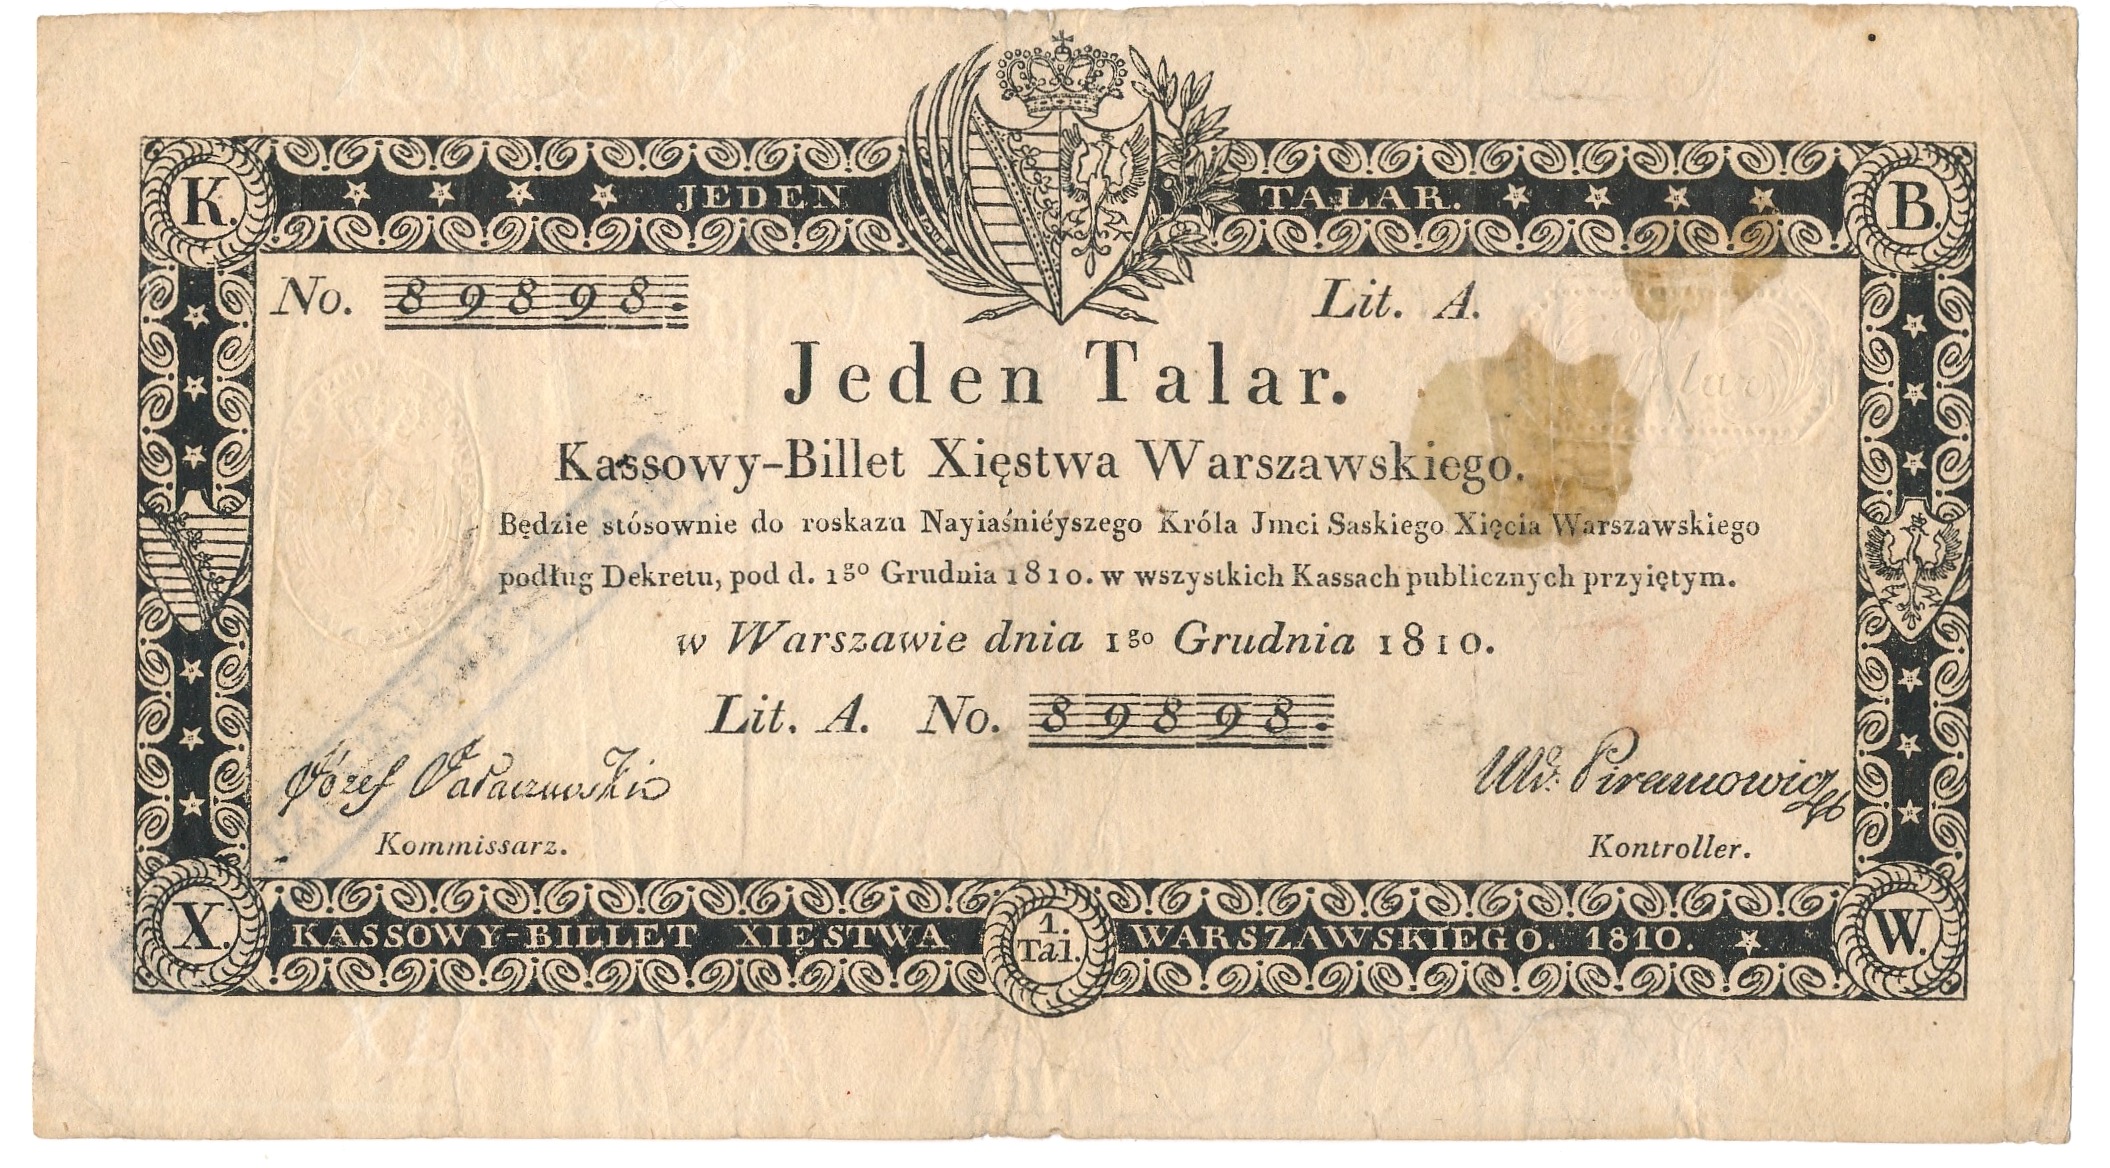 K. JEDEN TALAR. B.
No. 89898. Lit. A.
Jeden Talar.
Kassowy-Billet Xięstwa Warszawskiego.
Będzie stósownie do roskazu Nayiaśniéyszego Króla Jmci Saskiego Xięcia Warszawskiego
podług Dekretu, pod d. 1go Grudnia 1810. w wszystkich Kassach publicznych przyiętym.
w Warszawie dnia 1go Grudnia 1810.
Lit. A. No. 89898.
Józef
Kommissarz. Kontroller.
X. KASSOWY-BILLET XIĘSTWA 1. Tal. WARSZAWSKIEGO. 1810. W.